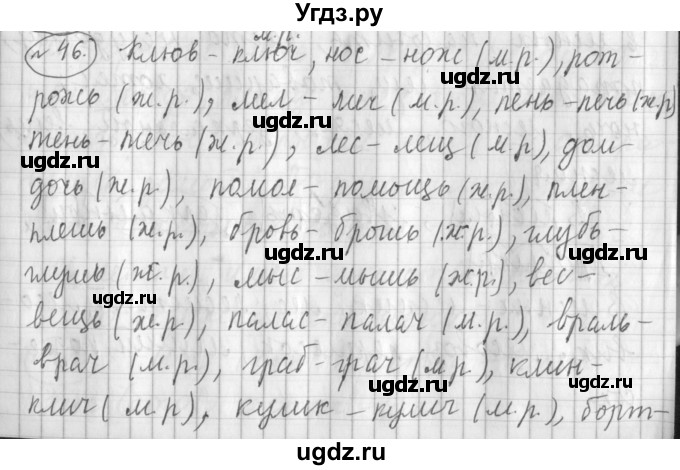 Угдз.ру
м.р.
№ 46. Клюв – ключ, нос – нож (м.р.), рот –
рожь (ж.р.), мел – меч (м.р.), пень – печь (ж.р)
тень – течь (ж.р.), лес – лещ (м.р), дом –
дочь (ж.р.), помол – помощь (ж.р.), плен –
плешь (ж.р.), бровь – брошь (ж.р.), глубь –
глушь (ж.р.), мыс – мышь (ж.р.), вес –
вещь (ж.р.), палас – палач (м.р.), враль –
врач (м.р.), граб – грач (м.р.), клин –
клич (м.р), кулик – кулич (м.р.), борт –
ugdz.ru ugdz.ru
ugdz.ru ugdz.ru ugdz.ru
ugdz.ru ugdz.ru
ugdz.ru ugdz.ru
ugdz.ru ugdz.ru
ugdz.ru ugdz.ru
Угдз.ру